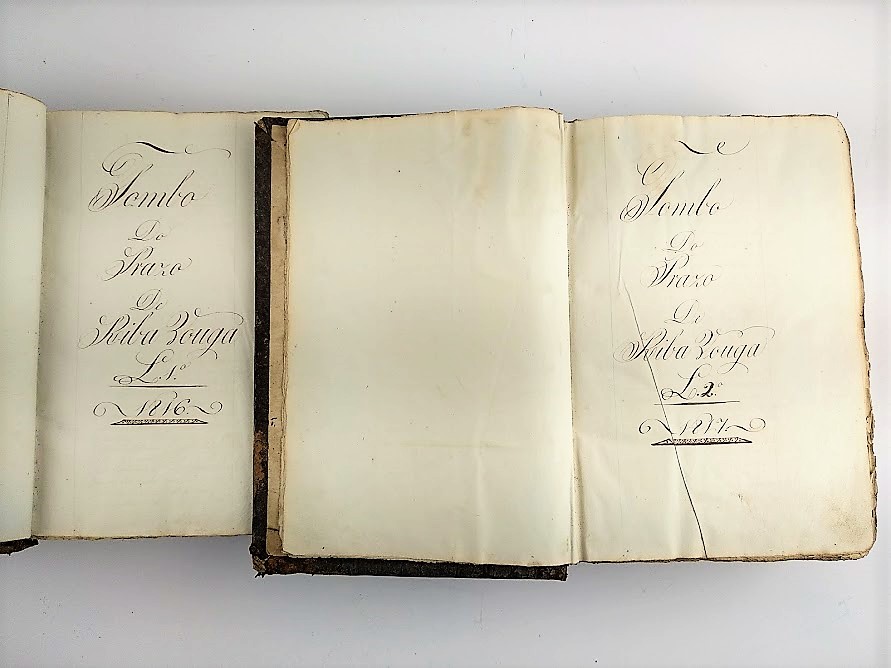 Tombo
Do
Prazo
De
Riba Vouga
L. 1.º
1816.
Tombo
Do
Prazo
De
Riba Vouga
L. 2.º
1817.